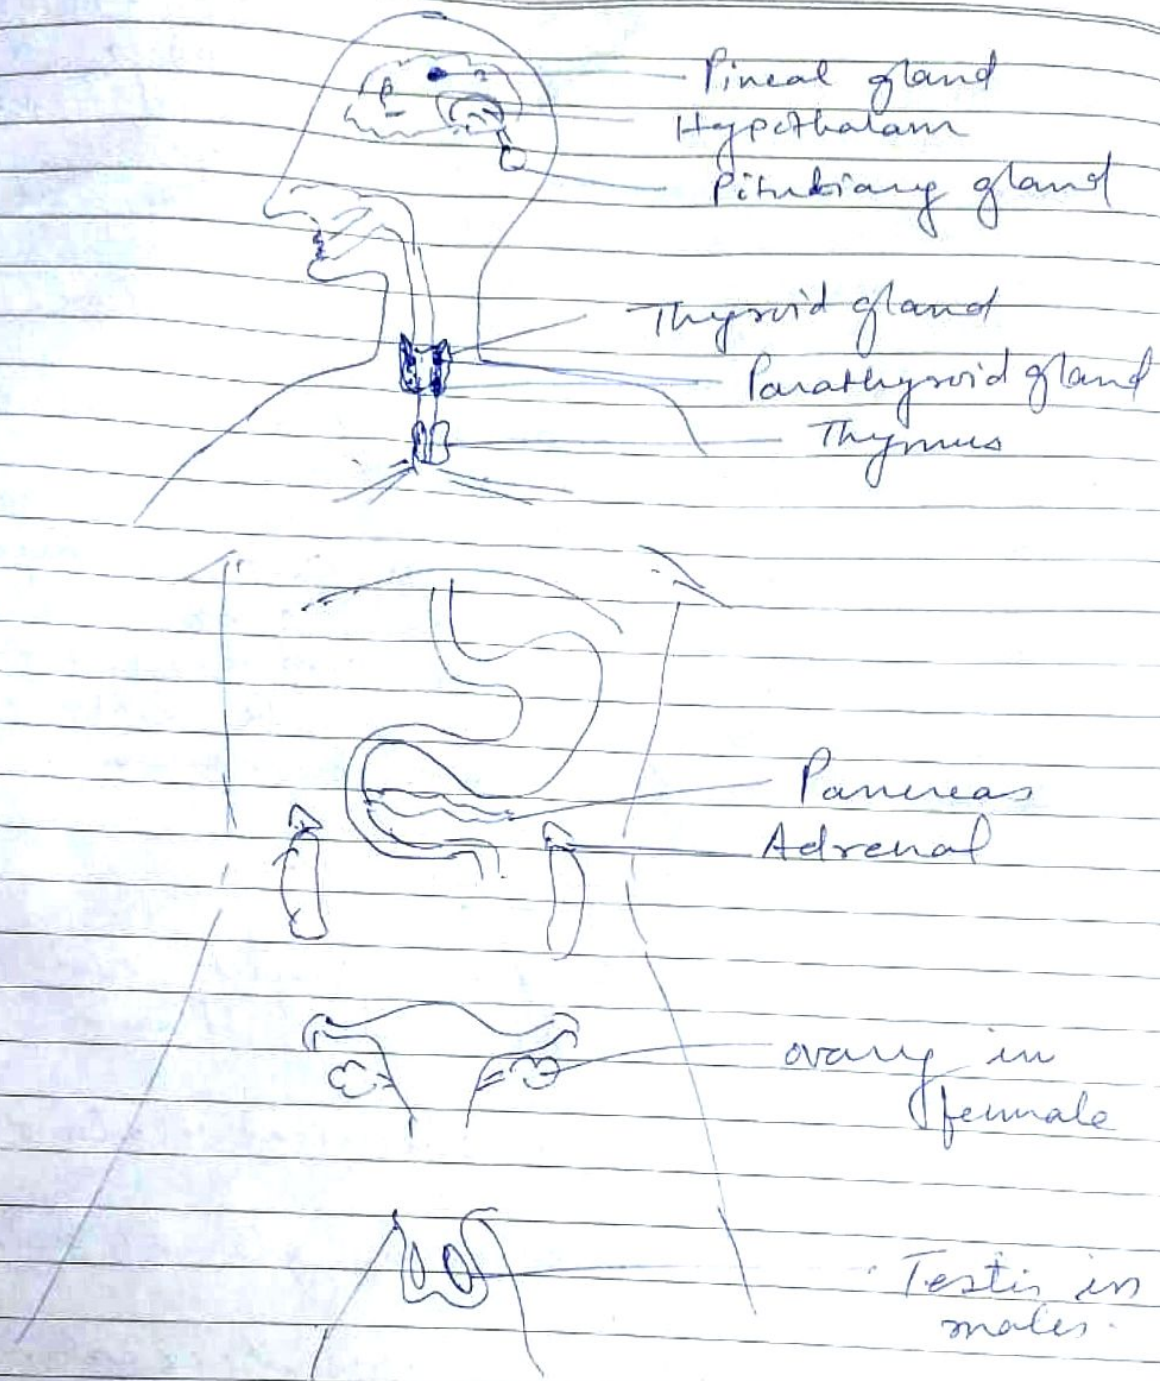 Pineal gland
Hypothalam
Pitubiary gland
Thyroid gland
Parathyroid gland
Thymus
Pancreas
Adrenal
ovary in
female
Testis in
males.